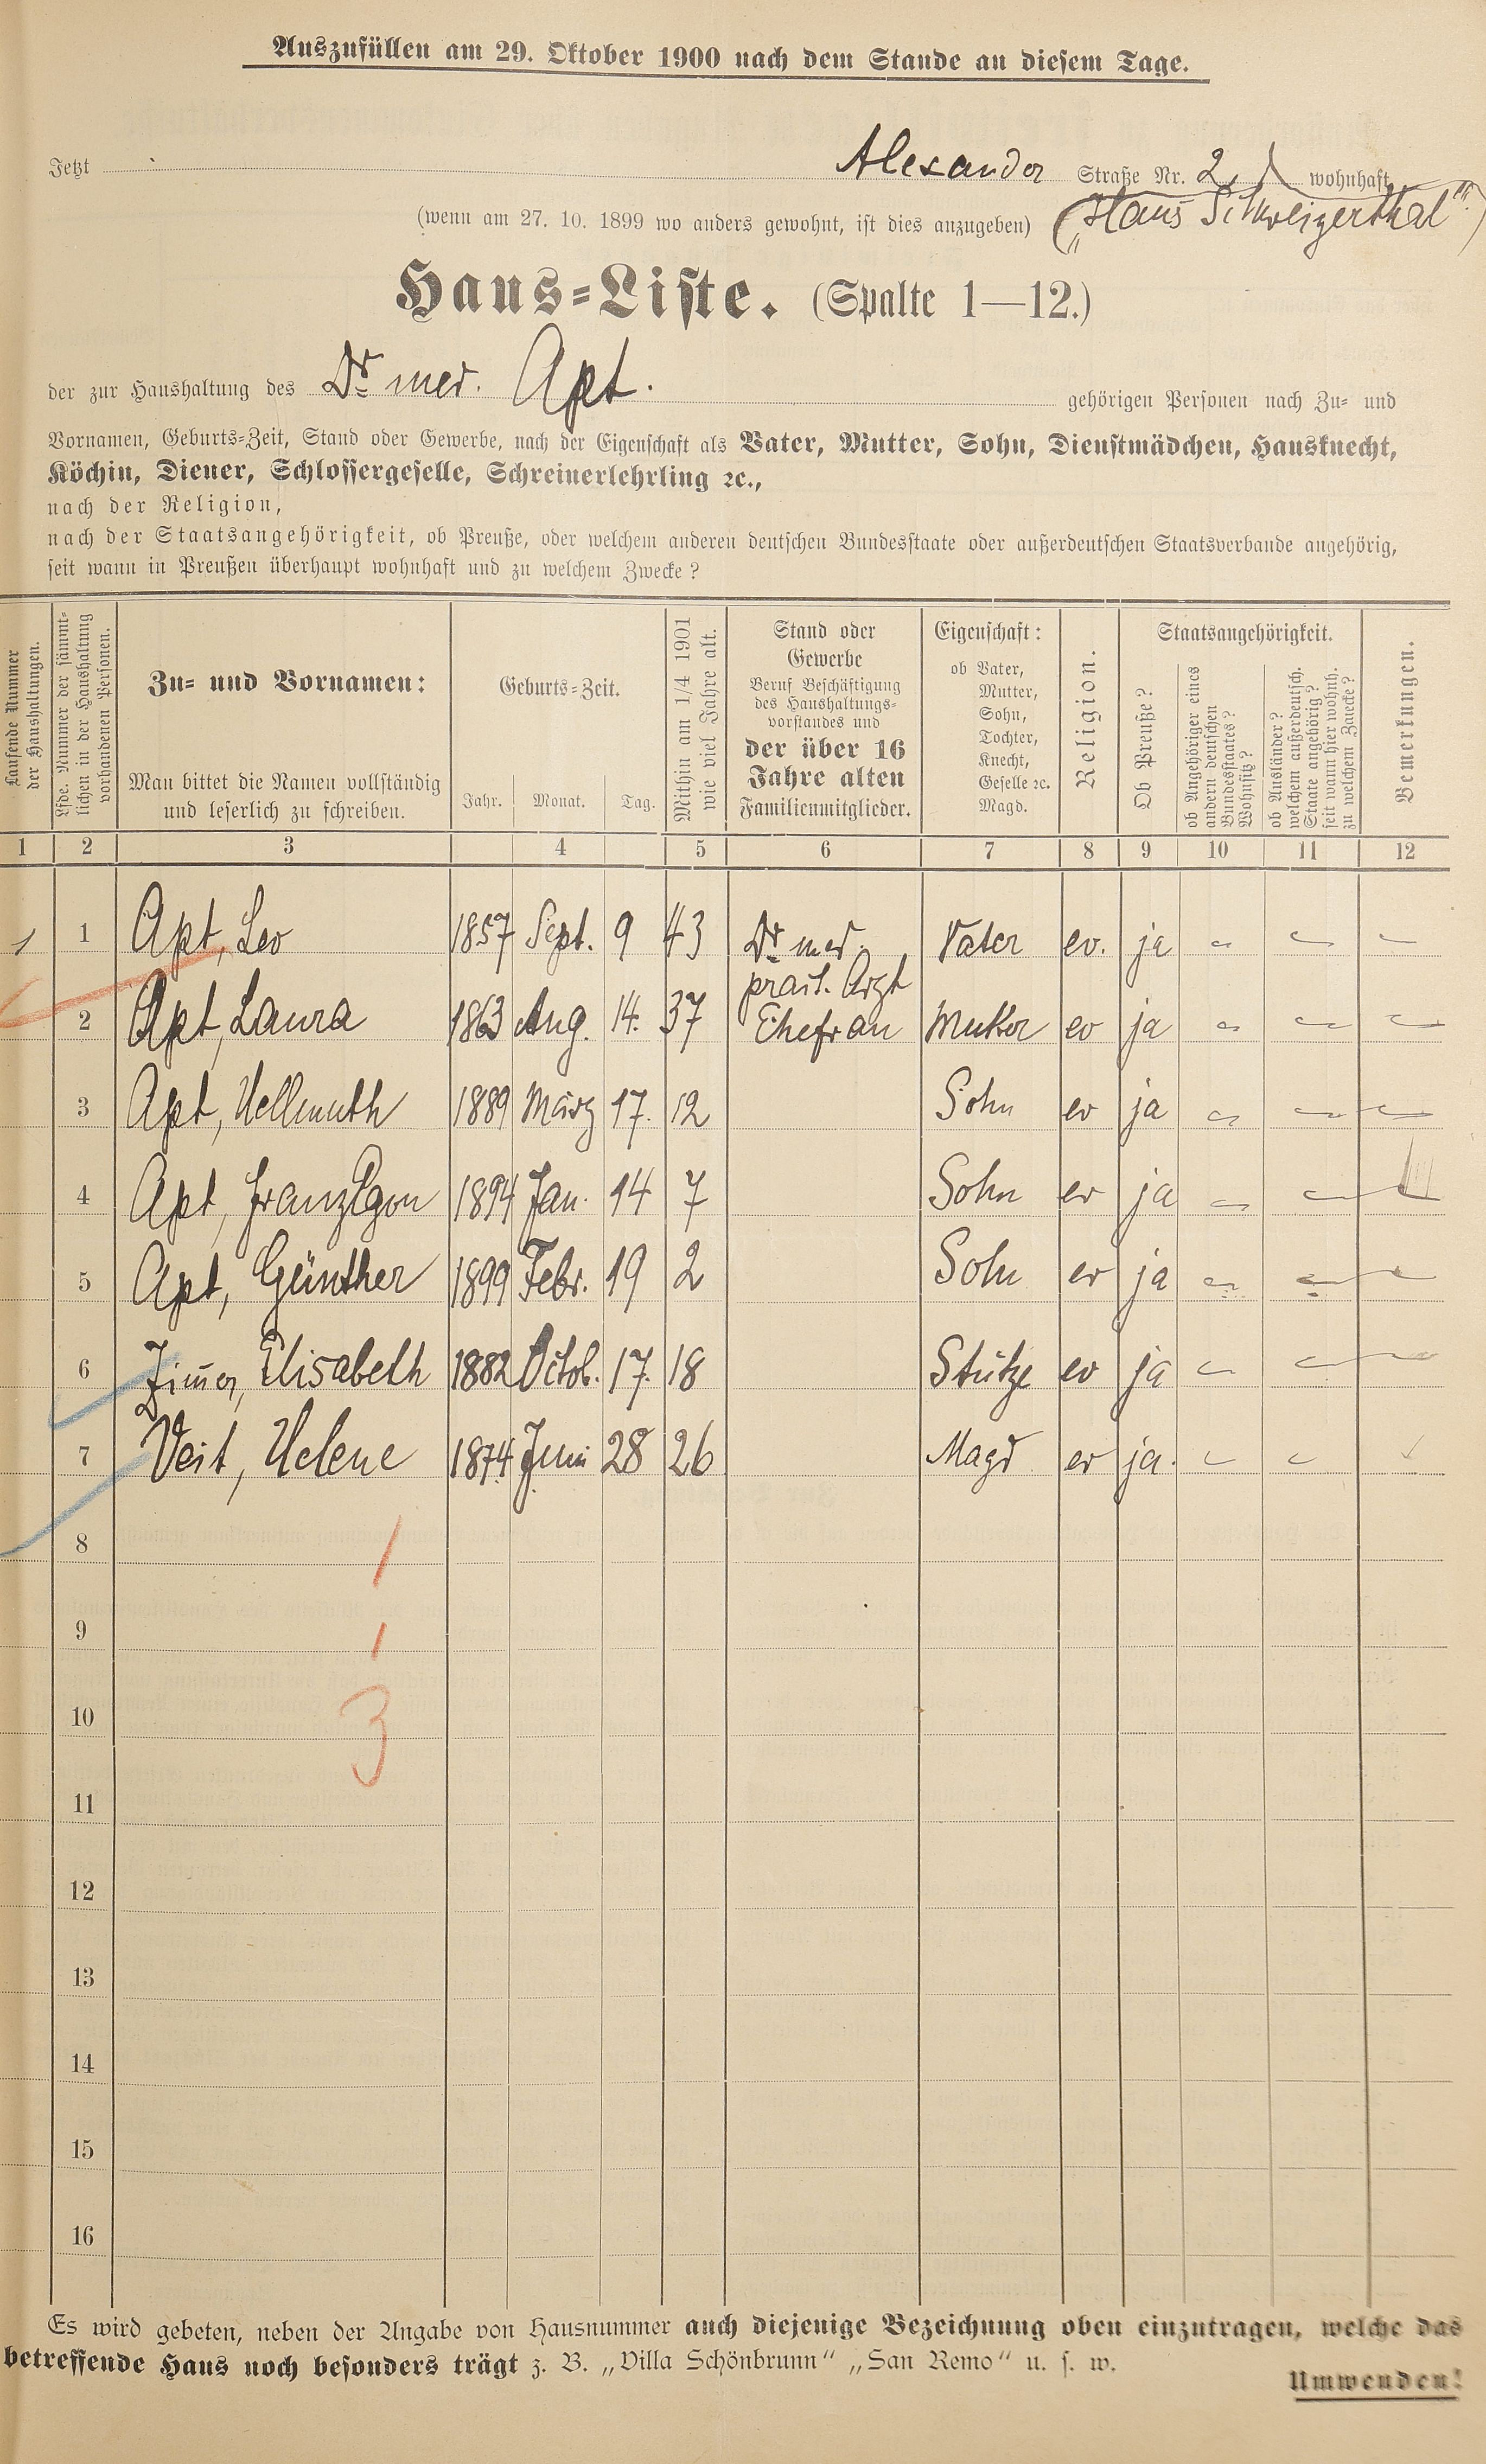 Auszufüllen am 29. Oktober 1900 nach dem Stande an diesem Tage.
Jetzt Alexander Straße Nr. 2, wohnhaft
(wenn am 27. 10. 1899 wo anders gewohnt, ist dies anzugeben) („Haus Schweizerthal“.)
Haus-Liste. (Spalte 1—12.)
der zur Haushaltung des Dr med. Apt. gehörigen Personen nach Zu- und
Vornamen, Geburts-Zeit, Stand oder Gewerbe, nach der Eigenschaft als Vater, Mutter, Sohn, Dienstmädchen, Hausknecht,
Köchin, Diener, Schlossergeselle, Schreinerlehrling ꝛc.,
nach der Religion,
nach der Staatsangehörigkeit, ob Preuße, oder welchem anderen deutschen Bundesstaate oder außerdeutschen Staatsverbande angehörig,
seit wann in Preußen überhaupt wohnhaft und zu welchem Zwecke?
Laufende Nummer
der Haushaltungen.
Lfde. Nummer der sämmt-
lichen in der Haushaltung
vorhandenen Personen.
Zu- und Vornamen:
Man bittet die Namen vollständig
und leserlich zu schreiben.
Geburts-Zeit.
Jahr. Monat. Tag.
Mithin am 1/4 1901
wie viel Jahre alt.
Stand oder
Gewerbe
Beruf Beschäftigung
des Haushaltungs-
vorstandes und
der über 16
Jahre alten
Familienmitglieder.
Eigenschaft:
ob Vater,
Mutter,
Sohn,
Tochter,
Knecht,
Geselle ꝛc.
Magd.
Religion.
Staatsangehörigkeit.
Ob Preuße?
ob Angehöriger eines
andern deutschen
Bundesstaates?
Wohnsitz?
ob Ausländer?
welchem außerdeutsch.
Staate angehörig?
seit wann hier wohnh.
zu welchem Zwecke?
Bemerkungen.
1 2 3 4 5 6 7 8 9 10 11 12
1 1 Apt, Leo 1857 Sept. 9 43 Dr med. Vater ev. ja
pract. Arzt
2 Apt, Laura 1863 Aug. 14. 37 Ehefrau Mutter ev ja
3 Apt, Hellmuth 1889 März 17. 12 Sohn ev ja
4 Apt, Franz Egon 1894 Jan. 14 7 Sohn ev ja
5 Apt, Günther 1899 Febr. 19 2 Sohn ev ja
6 Zimer, Elisabeth 1882 Octob. 17. 18 Stütze ev ja
7 Veit, Helene 1874 Juni 28 26 Magd ev ja.
8
1
9
1
10
3
11
12
13
14
15
16
Es wird gebeten, neben der Angabe von Hausnummer auch diejenige Bezeichnung oben einzutragen, welche das
betreffende Haus noch besonders trägt z. B. „Villa Schönbrunn“ „San Remo“ u. s. w.
Umwenden!